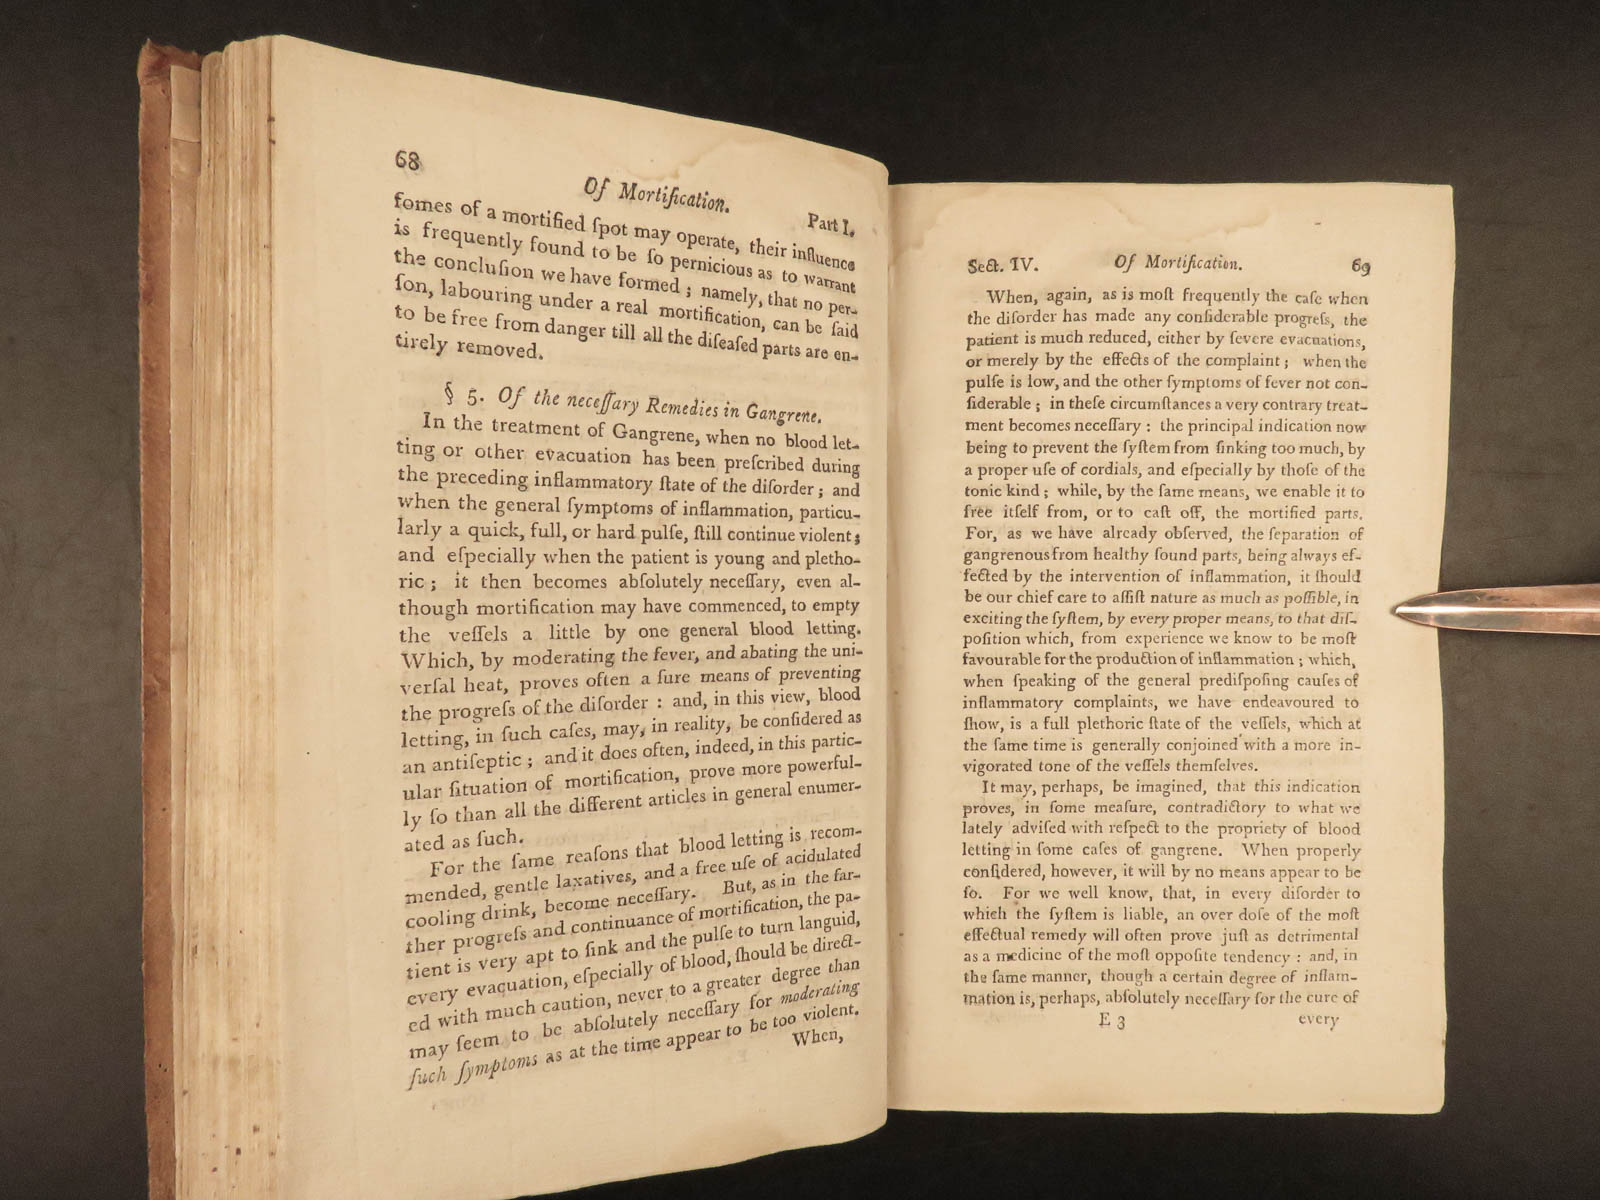 68
Of Mortification.
Part I.
ſomes of a mortified ſpot may operate, their influence
is frequently found to be ſo pernicious as to warrant
the concluſion we have formed ; namely, that no per-
ſon, labouring under a real mortification, can be ſaid
to be free from danger till all the diſeaſed parts are en-
tirely removed.
§ 5. Of the neceſſary Remedies in Gangrene.
In the treatment of Gangrene, when no blood let-
ting or other evacuation has been preſcribed during
the preceding inflammatory ſtate of the diſorder ; and
when the general ſymptoms of inflammation, particu-
larly a quick, full, or hard pulſe, ſtill continue violent ;
and eſpecially when the patient is young and pletho-
ric ; it then becomes abſolutely neceſſary, even al-
though mortification may have commenced, to empty
the veſſels a little by one general blood letting.
Which, by moderating the fever, and abating the uni-
verſal heat, proves often a ſure means of preventing
the progreſs of the diſorder : and, in this view, blood
letting, in ſuch caſes, may, in reality, be conſidered as
an antiſeptic ; and it does often, indeed, in this partic-
ular ſituation of mortification, prove more powerful-
ly ſo than all the different articles in general enumer-
ated as ſuch.
For the ſame reaſons that blood letting is recom-
mended, gentle laxatives, and a free uſe of acidulated
cooling drink, become neceſſary. But, as in the far-
ther progreſs and continuance of mortification, the pa-
tient is very apt to ſink and the pulſe to turn languid,
every evacuation, eſpecially of blood, ſhould be direct-
ed with much caution, never to a greater degree than
may ſeem to be abſolutely neceſſary for moderating
ſuch ſymptoms as at the time appear to be too violent.
When,
Sect. IV. Of Mortification. 69
When, again, as is moſt frequently the caſe when
the diſorder has made any conſiderable progreſs, the
patient is much reduced, either by ſevere evacuations,
or merely by the effects of the complaint ; when the
pulſe is low, and the other ſymptoms of fever not con-
ſiderable ; in theſe circumſtances a very contrary treat-
ment becomes neceſſary : the principal indication now
being to prevent the ſyſtem from ſinking too much, by
a proper uſe of cordials, and eſpecially by thoſe of the
tonic kind ; while, by the ſame means, we enable it to
free itſelf from, or to caſt off, the mortified parts.
For, as we have already obſerved, the ſeparation of
gangrenous from healthy ſound parts, being always ef-
fected by the intervention of inflammation, it ſhould
be our chief care to aſſiſt nature as much as poſſible, in
exciting the ſyſtem, by every proper means, to that diſ-
poſition which, from experience we know to be moſt
favourable for the production of inflammation ; which,
when ſpeaking of the general prediſpoſing cauſes of
inflammatory complaints, we have endeavoured to
ſhow, is a full plethoric ſtate of the veſſels, which at
the ſame time is generally conjoined with a more in-
vigorated tone of the veſſels themſelves.
It may, perhaps, be imagined, that this indication
proves, in ſome meaſure, contradictory to what we
lately adviſed with reſpect to the propriety of blood
letting in ſome caſes of gangrene. When properly
conſidered, however, it will by no means appear to be
ſo. For we well know, that, in every diſorder to
which the ſyſtem is liable, an over doſe of the moſt
effectual remedy will often prove juſt as detrimental
as a medicine of the moſt oppoſite tendency : and, in
the ſame manner, though a certain degree of inflam-
mation is, perhaps, abſolutely neceſſary for the cure of
E 3 every